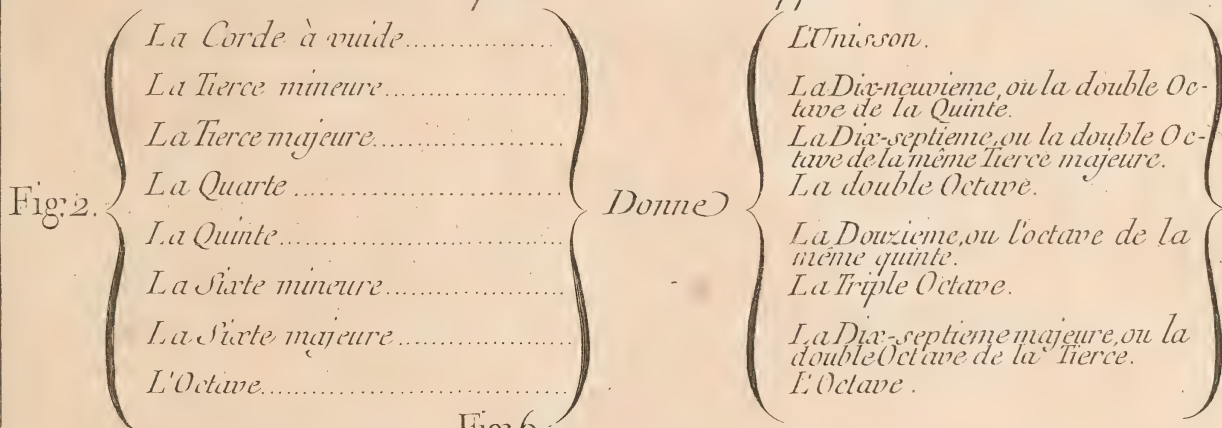 Fig: 2.
La Corde à vuide
La Tierce mineure
La Tierce majeure
La Quarte
La Quinte
La Sixte mineure
La Sixte majeure
L'Octave
Donne
L'Unisson.
La Dix-neuvieme, ou la double Oc-
tave de la Quinte.
La Dix-septieme, ou la double Oc-
tave de la même Tierce majeure.
La double Octave.
La Douzieme, ou l'octave de la
même quinte.
La Triple Octave.
La Dix-septieme majeure, ou la
double Octave de la Tierce.
L'Octave.
Fig: 6.